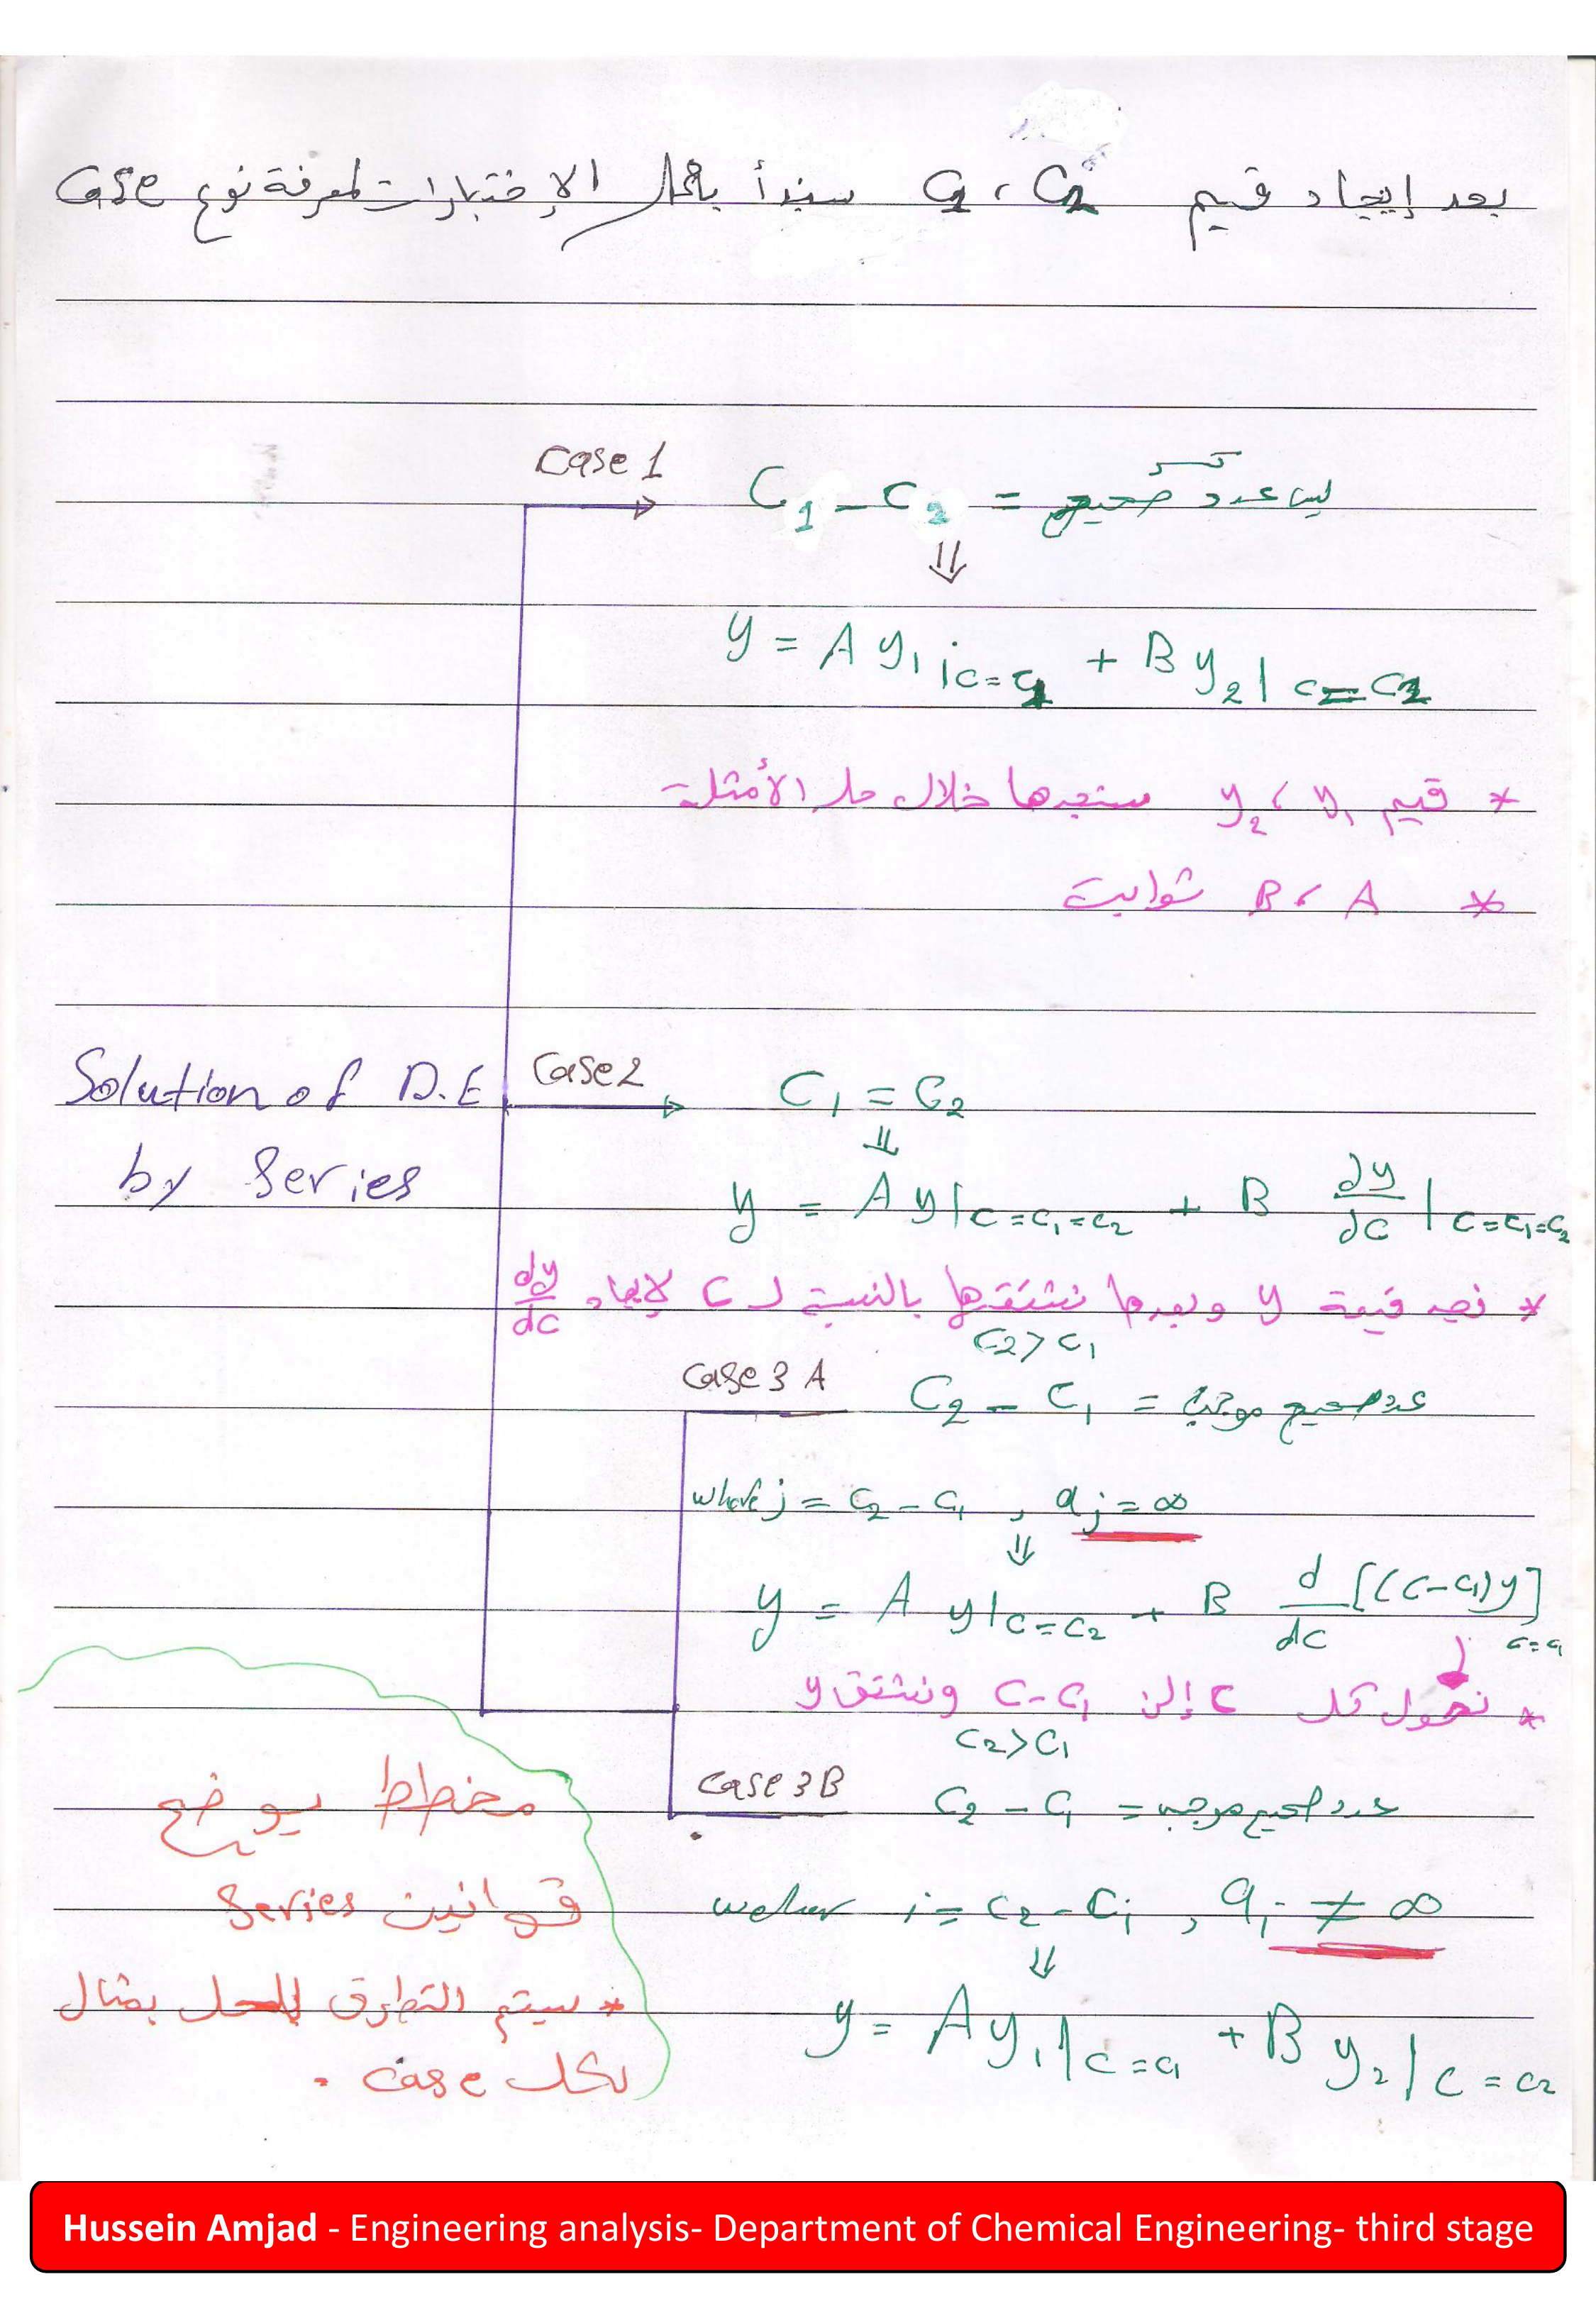 بعد إيجاد قيم C₂ ، C₁ سنبدأ بعمل الإختبارات لمعرفة نوع Case
Case 1
C₁ - C₂ = ليس عدد صحيح كسر
⇓
y = A y₁|c=c₁ + B y₂|c=c₂
* قيم y₁ ، y₂ سنجدها خلال حل الأمثلة
* A ، B ثوابت
Solution of D.E
by Series
Case 2
C₁ = C₂
⇓
y = A y|c=c₁=c₂ + B ∂y/∂c|c=c₁=c₂
* نجد قيمة y وبعدها نشتقها بالنسبة لـ C لإيجاد dy/dc
C₂ > C₁
Case 3 A
C₂ - C₁ = عدد صحيح موجب
where j = C₂ - C₁ , aj = ∞
⇓
y = A y|c=c₂ + B d/dc [(c-c₁)y] c=c₁
* نحول كل C إلى C-C₁ ونشتق y
C₂ > C₁
Case 3 B
C₂ - C₁ = عدد صحيح موجب
j = C₂ - C₁ , aj ≠ ∞
⇓
y = A y₁|c=c₁ + B y₂|c=c₂
مخطط يوضح
قوانين Series
* سيتم التطرق للحل بمثال
لكل case .
Hussein Amjad - Engineering analysis- Department of Chemical Engineering- third stage